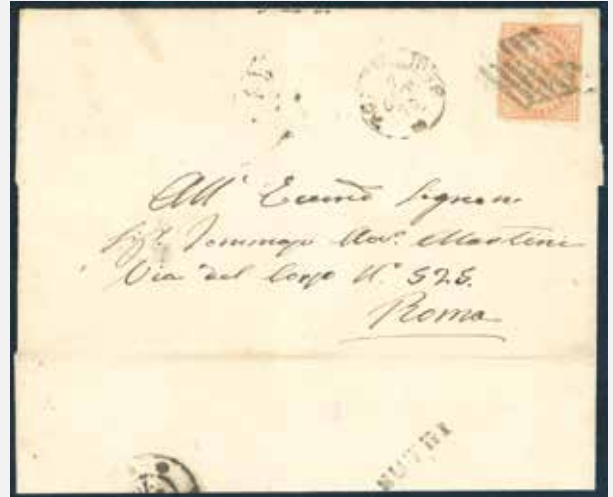 All' Eccmo Signore
Sig. Tommaso Avv. Martini
Via del Corso N. 525.
Roma
SUTRI